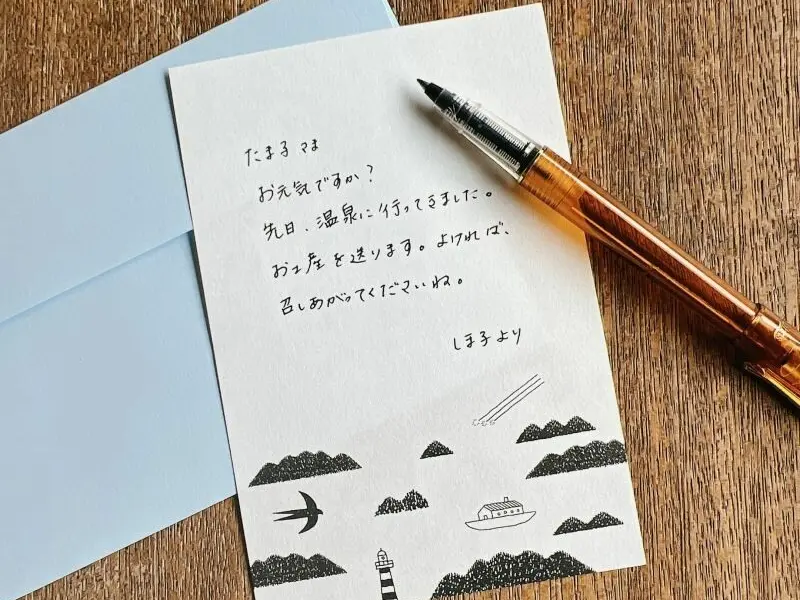 たま子さま
お元気ですか?
先日、温泉に行ってきました。
お土産を送ります。よければ、
召しあがってくださいね。
しま子より